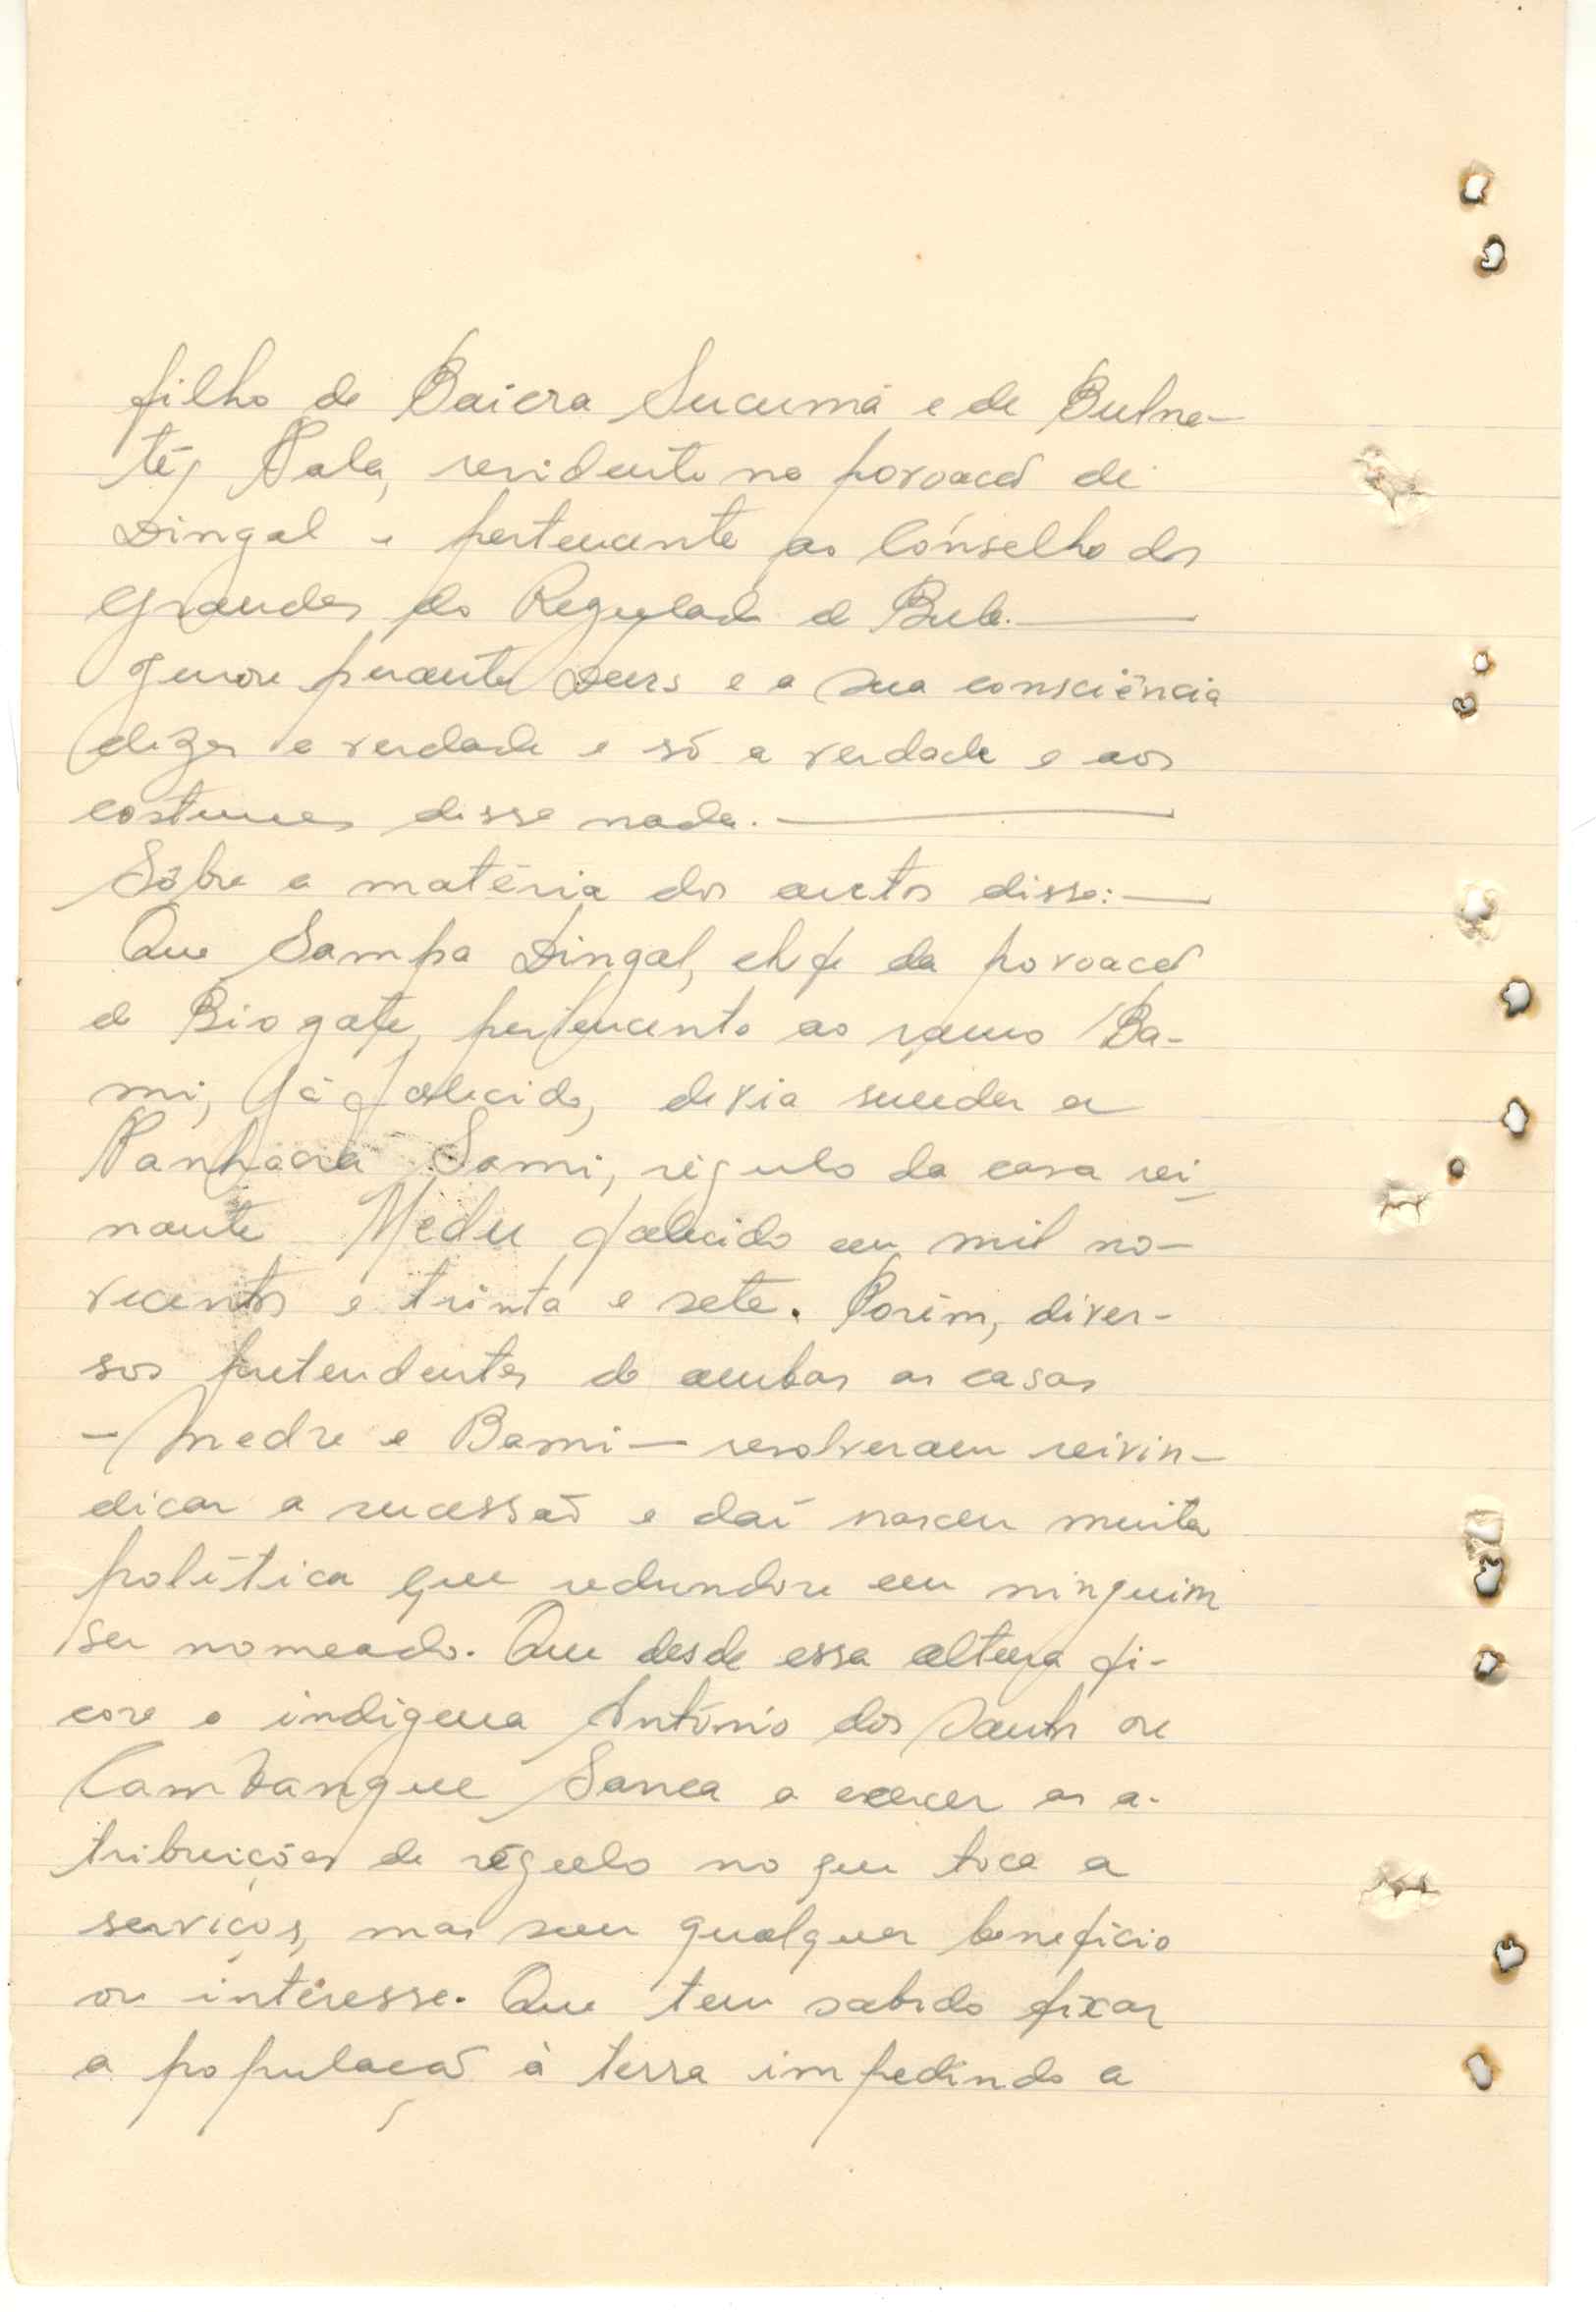 filho de Baiera Sucumá e de Bulna-
té, Pala, residente na povoação de
Dingal e pertencente ao Consêlho dos
Grandes do Regulado de Bula.
Jurou perante Deus e a sua consciência
dizer a verdade e só a verdade e aos
costumes disse nada.
Sôbre a matéria dos autos disse:
Que Sampa Dingal, chefe da povoação
de Biogate, pertencente ao ramo Ba-
mi, já falecido, devia suceder a
Panhacra Sami, régulo da casa rei-
nante Medu falecido em mil no-
vecentos e trinta e sete. Porém, diver-
sos pretendentes de ambas as casas
- Medre e Bami - resolveram reivin-
dicar a sucessão e daí nasceu muita
política que redundou em ninguém
ser nomeado. Que desde essa altura fi-
cou o indígena António dos Santos ou
Cambangue Sanca a exercer as a-
tribuições de régulo no que toca a
serviços, mas sem qualquer benefício
ou interêsse. Que tem sabido fixar
a população à terra impedindo a